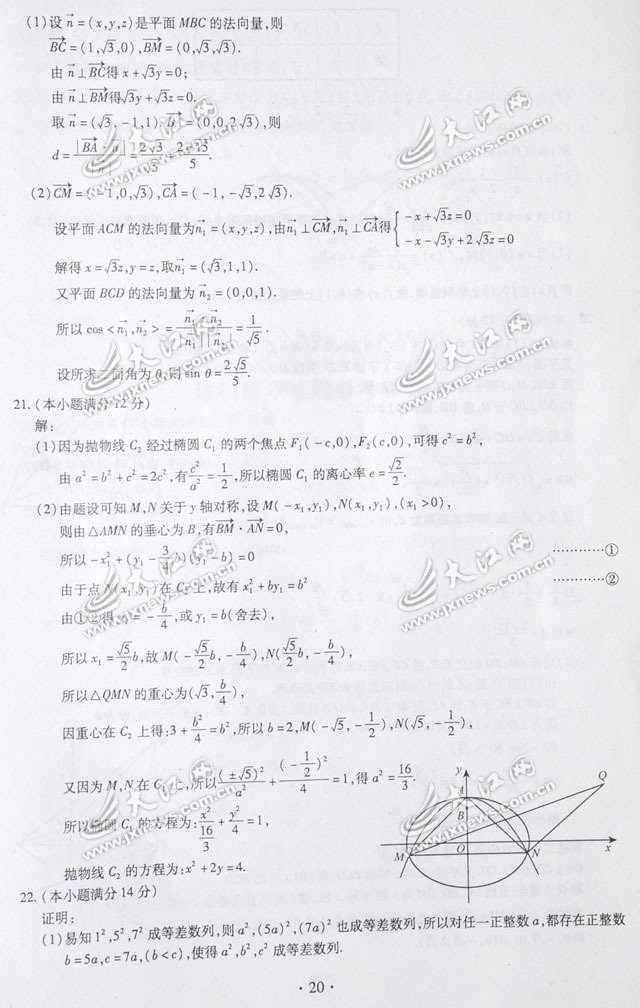 (1)设n⃗=(x,y,z)是平面MBC的法向量,则
BC⃗=(1,√3,0),BM⃗=(0,√3,√3).
由n⃗⊥BC⃗得x+√3y=0;
由n⃗⊥BM⃗得√3y+√3z=0.
取n⃗=(√3,-1,1), =(0,0,2√3),则
d=|BA⃗·n⃗|/|n⃗|=2√3/√5=2√15/5.
(2)CM⃗=(-1,0,√3),CA⃗=(-1,-√3,2√3).
设平面ACM的法向量为n₁⃗=(x,y,z),由n₁⃗⊥CM⃗,n₁⃗⊥CA⃗得{-x+√3z=0
-x-√3y+2√3z=0
解得x=√3z,y=z,取n₁⃗=(√3,1,1).
又平面BCD的法向量为n₂⃗=(0,0,1).
所以cos<n₁⃗,n₂⃗>=n₁⃗·n₂⃗/|n₁⃗||n₂⃗|=1/√5.
设所求二面角为θ,则sinθ=2√5/5.
21.(本小题满分12分)
解:
(1)因为抛物线C₂经过椭圆C₁的两个焦点F₁(-c,0),F₂(c,0),可得c²=b²,
由a²=b²+c²=2c²,有c²/a²=1/2,所以椭圆C₁的离心率e=√2/2.
(2)由题设可知M,N关于y轴对称,设M(-x₁,y₁),N(x₁,y₁),(x₁>0),
则由△AMN的垂心为B,有BM⃗·AN⃗=0,
所以-x₁²+(y₁-3/4b)(y₁-b)=0 …………①
由于点N(x₁,y₁)在C₂上,故有x₁²+by₁=b² …………②
由①②得y₁=-b/4,或y₁=b(舍去),
所以x₁=√5/2b,故M(-√5/2b,-b/4),N(√5/2b,-b/4),
所以△QMN的重心为(√3,b/4),
因重心在C₂上得:3+b²/4=b²,所以b=2,M(-√5,-1/2),N(√5,-1/2),
又因为M,N在C₁上,所以(±√5)²/a²+(-1/2)²/4=1,得a²=16/3.
所以椭圆C₁的方程为:x²/(16/3)+y²/4=1,
抛物线C₂的方程为:x²+2y=4.
y
A
B
O
M
N
Q
x
22.(本小题满分14分)
证明:
(1)易知1²,5²,7²成等差数列,则a²,(5a)²,(7a)²也成等差数列,所以对任一正整数a,都存在正整数
b=5a,c=7a,(b<c),使得a²,b²,c²成等差数列.
·20·
大江网
www.jxnews.com.cn
大江网
www.jxnews.com.cn
大江网
www.jxnews.com.cn
大江网
www.jxnews.com.cn
大江网
www.jxnews.com.cn
大江网
www.jxnews.com.cn